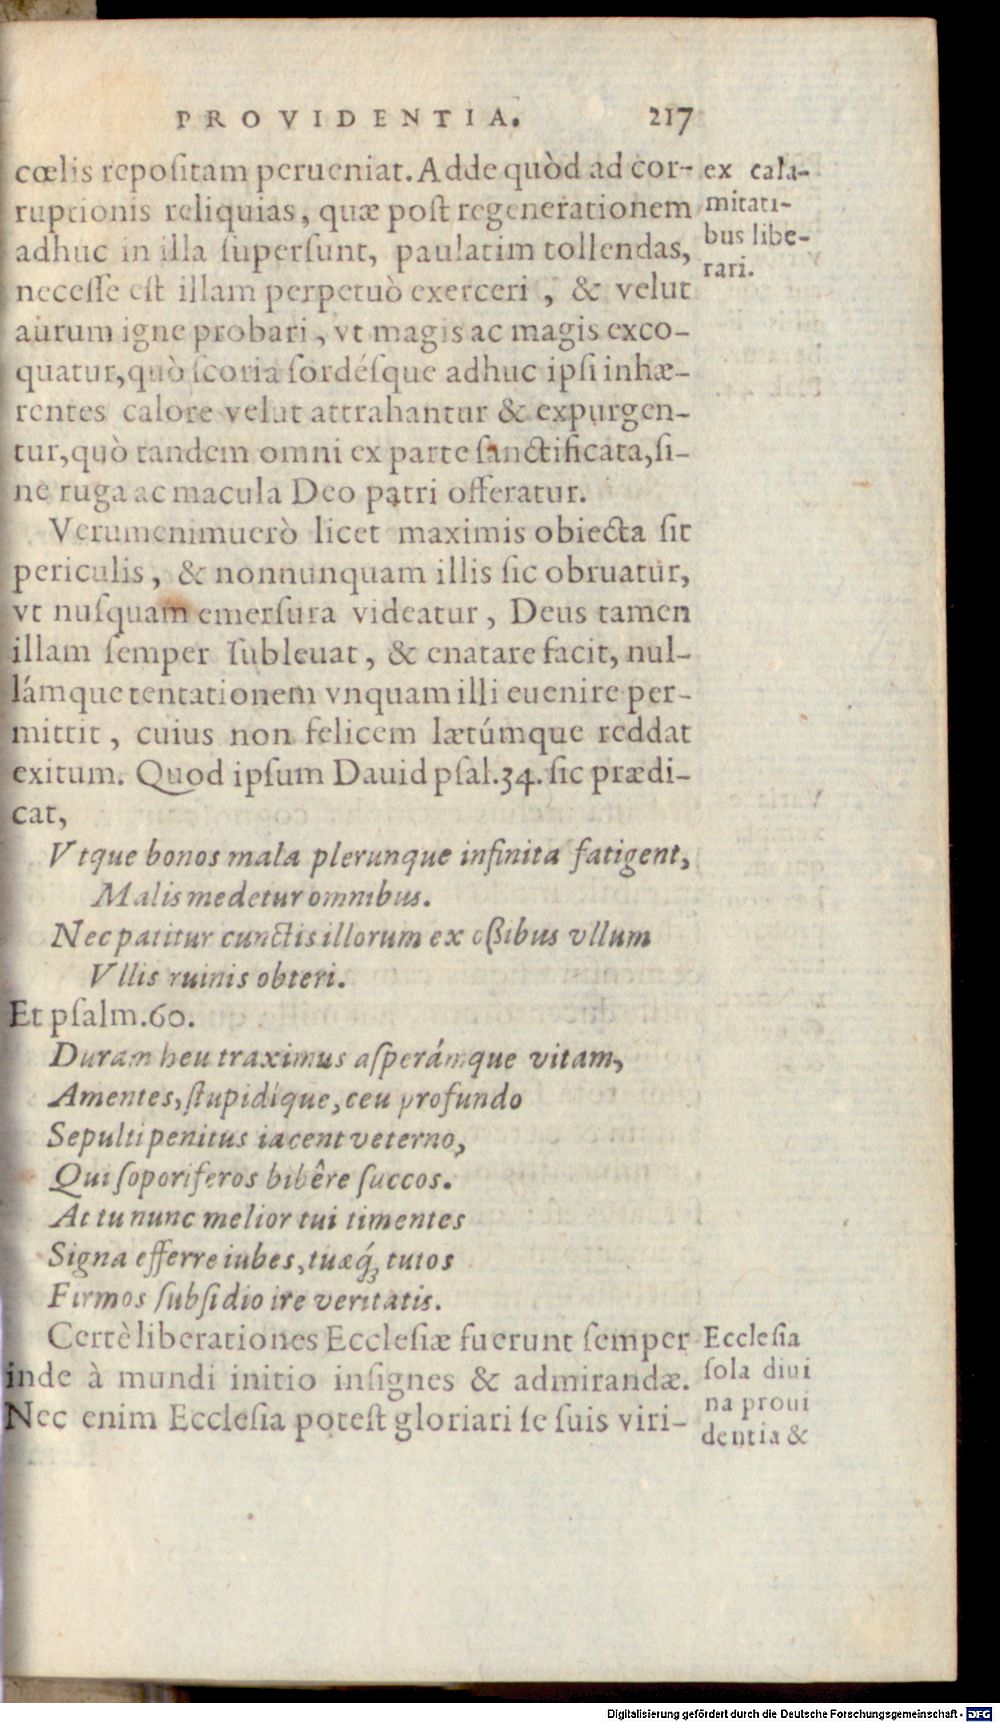 PROVIDENTIA. 217
cœlis repoſitam perueniat. Adde quòd ad cor-
ruptionis reliquias, quæ poſt regenerationem
adhuc in illa ſuperſunt, paulatim tollendas,
neceſſe eſt illam perpetuò exerceri, & velut
aurum igne probari, vt magis ac magis exco-
quatur, quò ſcoria ſordéſque adhuc ipſi inhæ-
rentes calore velut attrahantur & expurgen-
tur, quò tandem omni ex parte ſanctificata, ſi-
ne ruga ac macula Deo patri offeratur.
ex cala-
mitati-
bus libe-
rari.
Verumenimuerò licet maximis obiecta ſit
periculis, & nonnunquam illis ſic obruatur,
vt nuſquam emerſura videatur, Deus tamen
illam ſemper ſubleuat, & enatare facit, nul-
lámque tentationem vnquam illi euenire per-
mittit, cuius non felicem lætúmque reddat
exitum. Quod ipſum Dauid pſal.34. ſic prædi-
cat,
Vtque bonos mala plerunque infinita fatigent,
Malis medetur omnibus.
Nec patitur cunctis illorum ex oßibus vllum
Vllis ruinis obteri.
Et pſalm.60.
Duram heu traximus aſperámque vitam,
Amentes, ſtupidíque, ceu profundo
Sepulti penitus iacent veterno,
Qui ſoporiferos bibêre ſuccos.
At tu nunc melior tui timentes
Signa efferre iubes, tuæq́ꝫ tutos
Firmos ſubſidio ire veritatis.
Certè liberationes Eccleſiæ fuerunt ſemper
inde à mundi initio inſignes & admirandæ.
Nec enim Eccleſia poteſt gloriari ſe ſuis viri-
Eccleſia
ſola diui
na proui
dentia &
Digitalisierung gefördert durch die Deutsche Forschungsgemeinschaft - DFG